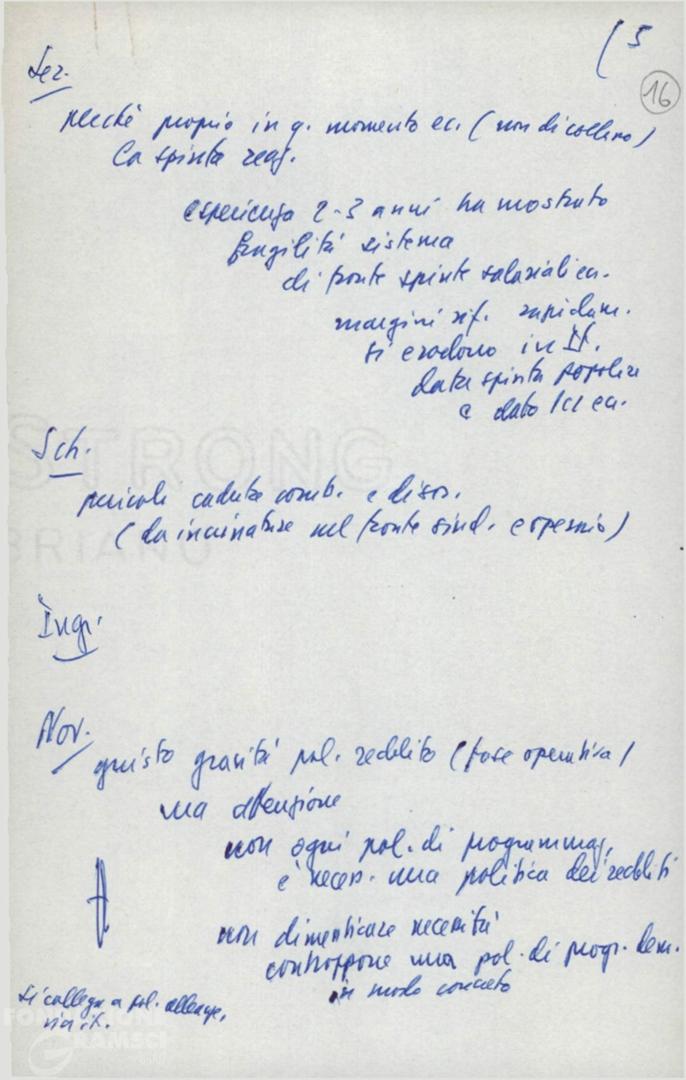 ( 5
16
Ser.
perché proprio in q. momento ec. (non di collasso)
la spinta reaz.
esperienza 2-3 anni ha mostrato
fragilità sistema
di fronte spinte salariali ec.
margini rif. rapidam.
si erodono in It.
data spinta popolare
e dato ec.
STRONG
BRIANO
Sch.
pericoli cadute comb. e disor.
(da incrinature nel fronte sind. e operaio)
Ingr.
Nov.
giusto gravità pol. reddito (fase operativa)
ma attenzione
non ogni pol. di programmaz.
è neces. una politica dei redditi
non dimenticare necessità
contrapporre una pol. di progr. dem.
in modo concreto
si collega a pol. alleanze,
via it.
FONDAZIONE
GRAMSCI